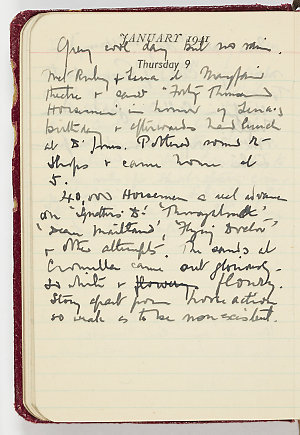 JANUARY 1941
Thursday 9
Grey cool day but no rain.
Met Ruby & Lena at Mayfair
theatre & saw "Forty Thousand
Horsemen" in honor of Lena's
birthday & afterwards had lunch
at D. Jones. Pottered round
shops & came home at
5.
40,000 Horsemen a real advance
on
'Dean Maitland', 'Flying Doctor'
& other attempts. The sands at
Cronulla came out gloriously
so white & flowery floury.
Story apart from horse action
so weak as to be non existent.